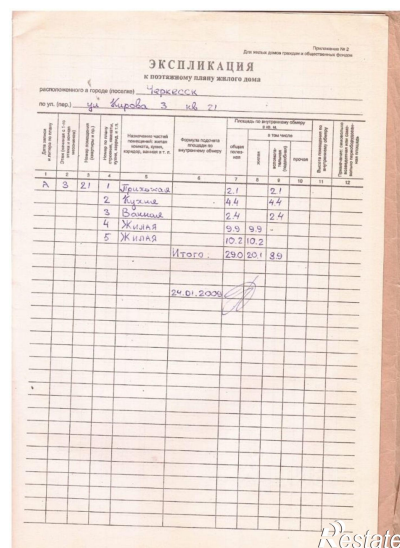 Приложение № 2
Для жилых домов граждан и общественных фондов
ЭКСПЛИКАЦИЯ
к поэтажному плану жилого дома
расположенного в городе (поселке) Черкесск
по ул. (пер.) ул Кирова 3 кв 21
Площадь по внутреннему обмеру в кв. м.
в том числе
Назначение частей помещений: жилая комната, кухня, коридор, ванная и т. п.
Формула подсчета площади по внутреннему обмеру
общая полезная
жилая
прочей
Высота помещения по внутреннему обмеру
1 2 3 4 5 6 7 8 9 10 11 12
А 3 21 1 Прихожая 2.1 2.1
2 Кухня 4.4 4.4
3 Ванная 2.4 2.4
4 Жилая 9.9 9.9 -
5 Жилая 10.2 10.2
Итого: 29.0 20.1 8.9
24.01.2009
Restate